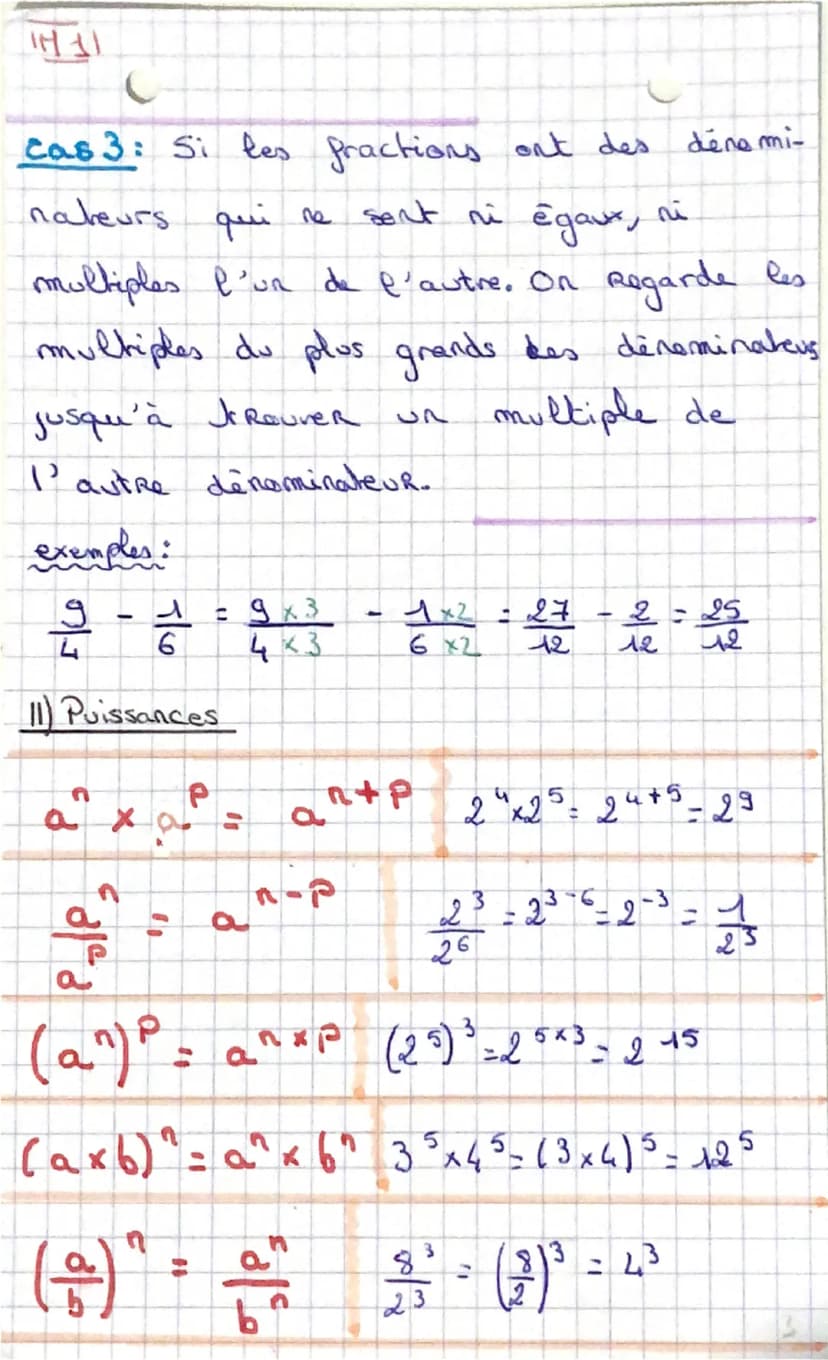 cas 3: Si les fractions ont des dénomi-
nateurs qui ne sont ni égaux, ni
multiples l'un de l'autre. On Regarde les
multiples du plus grands des dénominateurs
jusqu'à trouver un multiple de
l'autre dénominateur.
exemples:
9/4 - 1/6 = 9×3/4×3 - 1×2/6×2 = 27/12 - 2/12 = 25/12
II) Puissances
aⁿ × aᵖ = aⁿ⁺ᵖ 2⁴×2⁵ = 2⁴⁺⁵ = 2⁹
aⁿ/aᵖ = aⁿ⁻ᵖ 2³/2⁶ = 2³⁻⁶ = 2⁻³ = 1/2³
(aⁿ)ᵖ = aⁿˣᵖ (2⁵)³ = 2⁵ˣ³ = 2¹⁵
(a×b)ⁿ = aⁿ × bⁿ 3⁵×4⁵ = (3×4)⁵ = 12⁵
(a/b)ⁿ = aⁿ/bⁿ 8³/2³ = (8/2)³ = 4³